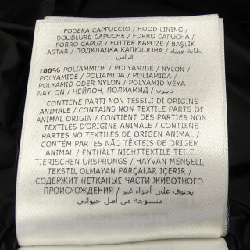 FODERA CAPPUCCIO / HOOD LINING /
DOUBLURE CAPUCHE / FORRO CAPUCHA /
FORRO CAPUZ / FUTTER KAPUZE / BAŞLIK
ASTAR / ПОДКЛАДКА КАПЮШОНА /
الرأس
100% POLIAMMIDE / POLYAMIDE / NYLON /
POLYAMIDE / POLIAMIDA / POLIAMIDA /
POLYAMID ODER NYLON / POLYAMID VEYA
NAYLON / НЕЙЛОН, ПОЛИАМИД /
CONTIENE PARTI NON TESSILI DI ORIGINE
ANIMALE / CONTAINS NON TEXTILE PARTS OF
ANIMAL ORIGIN / CONTIENT DES PARTIES NON
TEXTILES D'ORIGINE ANIMALE / CONTIENE
PARTES NO TEXTILES DE ORIGEN ANIMAL /
CONTÉM PARTES NÃO TÊXTEIS DE ORIGEM
ANIMAL / ENTHÄLT NICHTTEXTILE TEILE
TIERISCHEN URSPRUNGS / HAYVAN MENŞELİ,
TEKSTİL OLMAYAN PARÇALAR İÇERİR /
СОДЕРЖИТ НЕТКАНЫЕ ЧАСТИ ЖИВОТНОГО
ПРОИСХОЖДЕНИЯ / يحتوي على أجزاء غير
منسوجة من أصل حيواني